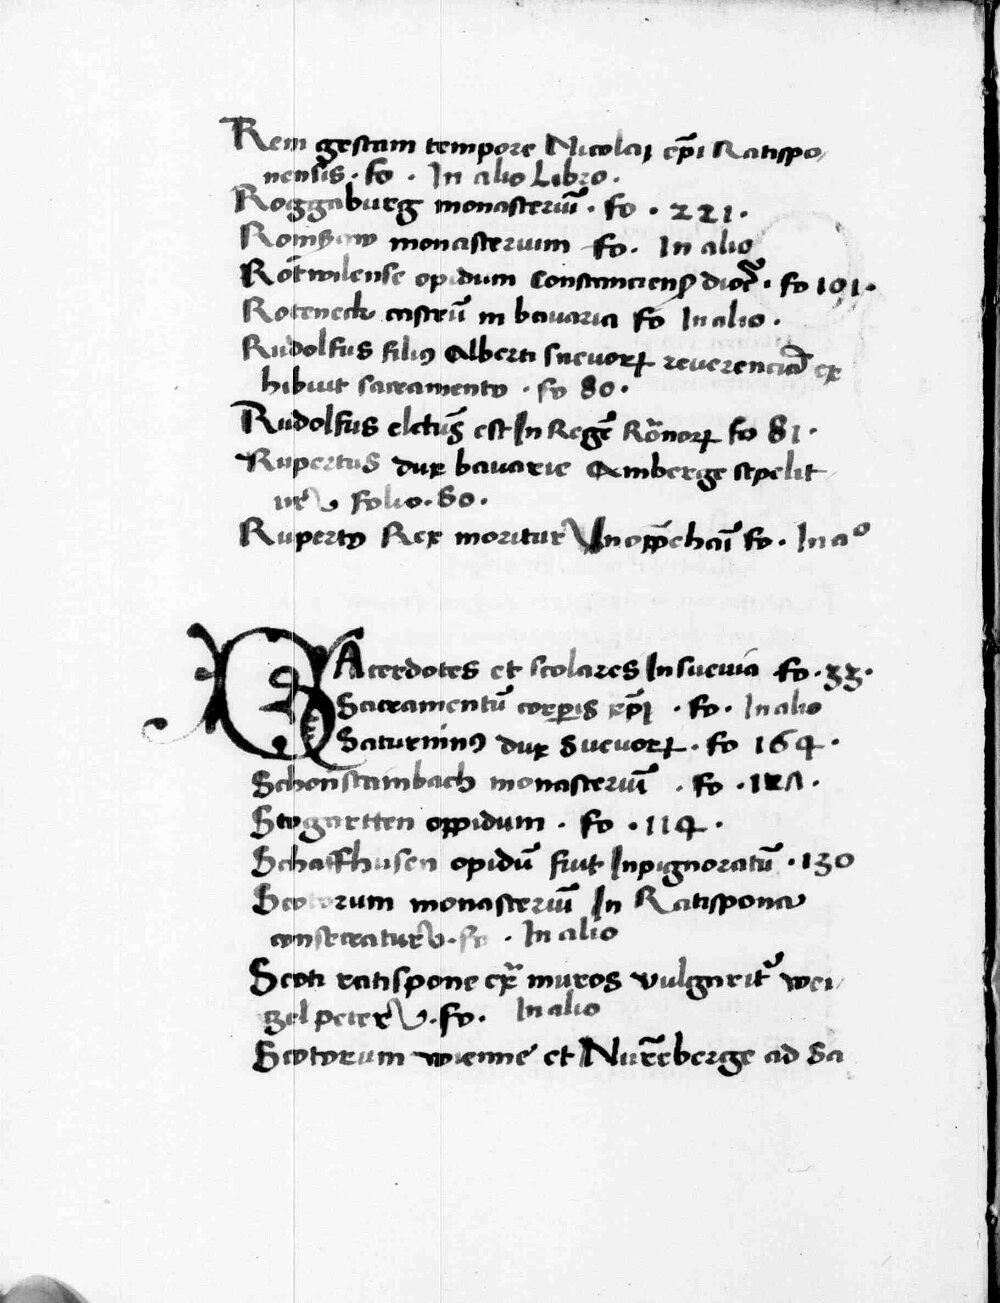 Rem gestam tempore Nicolaj ep̄i Ratispo
nensis · fo · In alio Libro ·
Roggaburg monasteriū · fo · 221 ·
Romsaw monasterium fo · In alio
Rotwilense opidum Constanciensꝭ dioc̄ · fo 191 ·
Roteneck castrū in bauaria fo In alio ·
Rudolfus filiꝯ Alberti sueuorꝝ reuerenciā ex
hibuit sacramento · fo 80 ·
Rudolfus elctus̄ est In Regē Rōnorꝝ fo 81 ·
Rupertus dux bauarie Amberge sepelit
ur Folio · 80 ·
Rupertꝯ Rex moritur In opp̄ehaī fo · In aº
SAcerdotes et scolares In sueuia fo · 33 ·
Sacramentū corpꝑis xp̄i · fo · In alio
Saturninꝯ dux Sueuorꝝ · fo 164 ·
Schonstainbach monasteriū · fo ·
Stogartten oppidum · fo · 114 ·
Schaffhusen opidū fuit Inpignoratū · 130
Scotorum monasteriū In Ratispona
consecratur · fo · In alio
Scoti ratispone ex̄ muros vulgarit̄ wei
zel peter · fo · In alio
Scotorum wienne et Nur̄eberge ad Sa